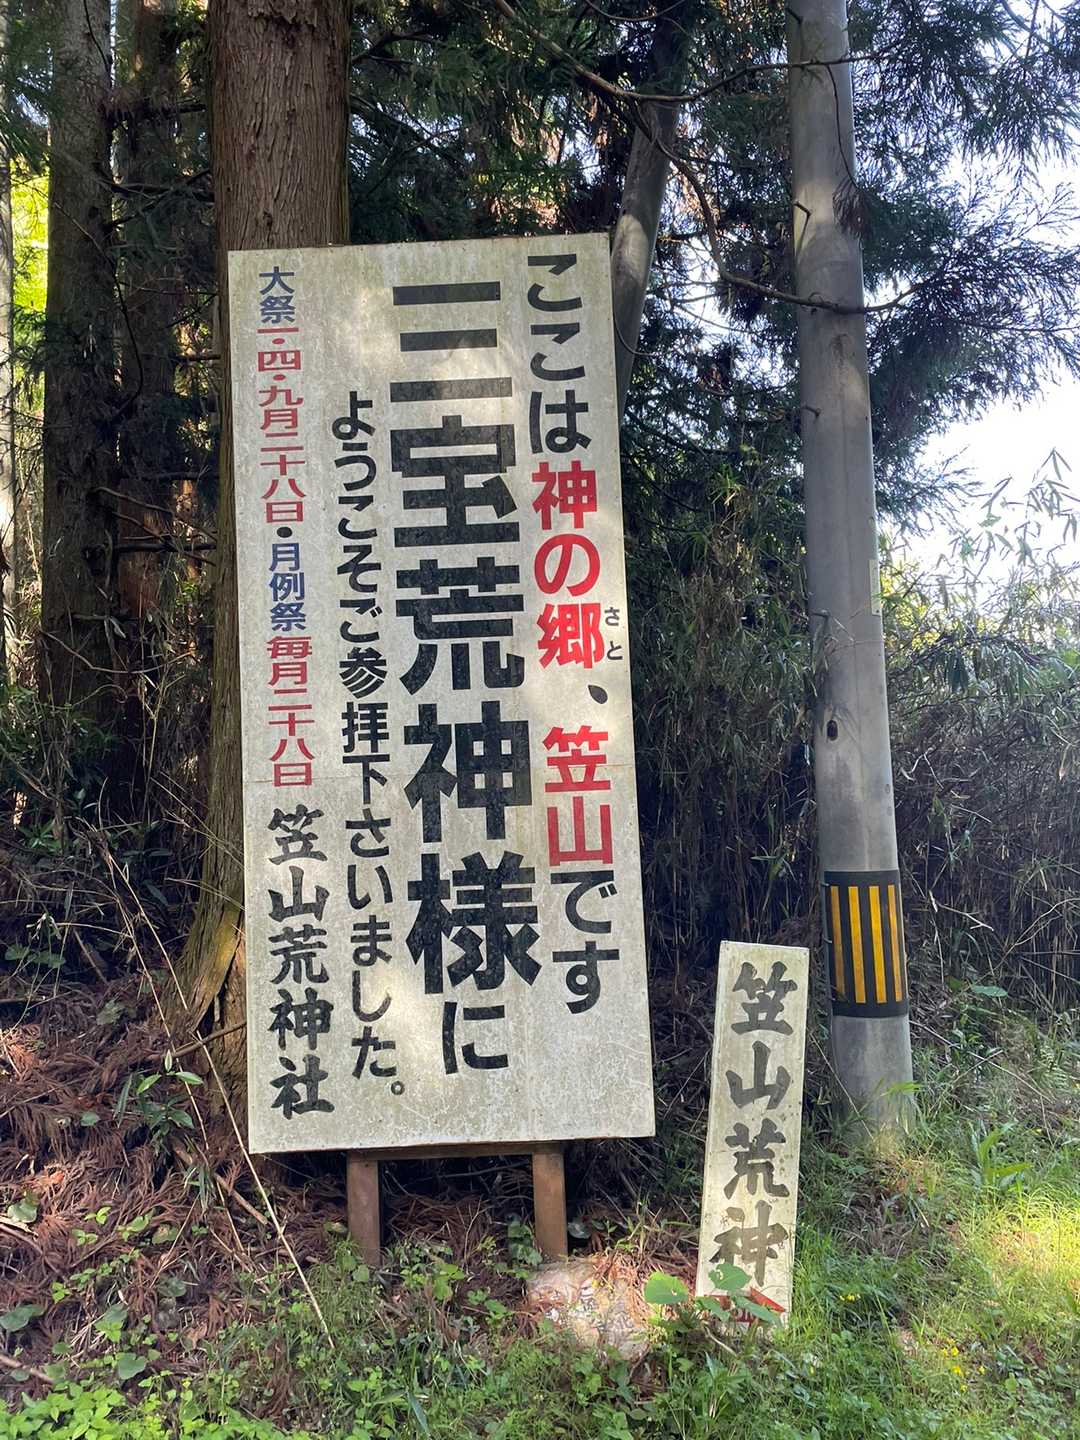 ここは神の郷、笠山です
さと
三宝荒神様に
ようこそご参拝下さいました。
大祭一・四・九月二十八日・月例祭毎月二十八日 笠山荒神社
笠山荒神